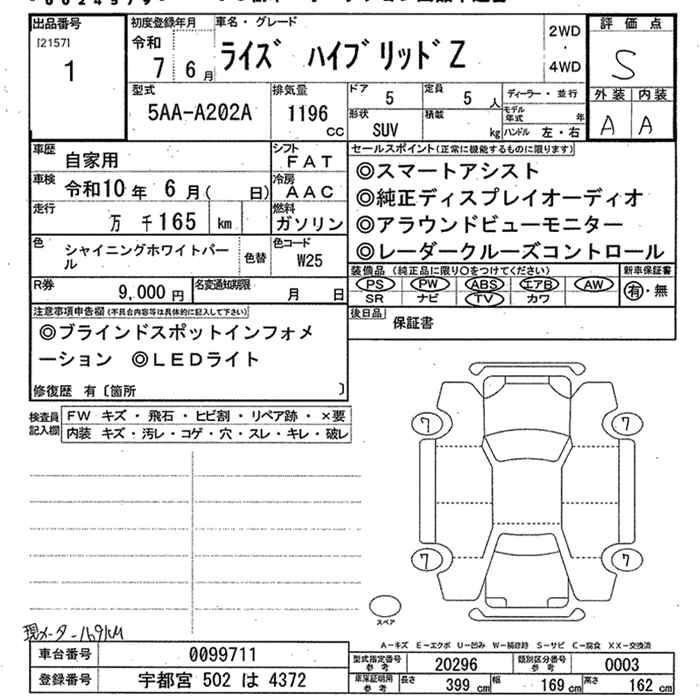 出品番号 初度登録年月 車名・グレード 2WD ・ 4WD 評価点
[2157] 1 令和 7 6月 ライズ ハイブリッドZ S
型式 排気量 ドア 定員 ディーラー・並行 外装 内装
5AA-A202A 1196 CC 5 5人 モデル年式 年 A A
形状 SUV 積載 kg ハンドル 左・右
車歴 自家用 シフト FAT セールスポイント(正常に機能するものに限ります)
車検 令和10年 6月( 日) 冷房 AAC ◎スマートアシスト
走行 万 千165 km 燃料 ガソリン ◎純正ディスプレイオーディオ
◎アラウンドビューモニター
色 シャイニングホワイトパール 色替 色コード W25 ◎レーダークルーズコントロール
装備品 (純正品に限り○をつけてください) 新車保証書
R券 9,000円 名変通知期限 月 日 PS PW ABS エアB AW 有・無
SR ナビ TV カワ
注意事項申告欄(不具合内容等は具体的に記入して下さい) 後日品 保証書
◎ブラインドスポットインフォメ
ーション ◎LEDライト
修復歴 有〔箇所 〕
検査員記入欄 FW キズ・飛石・ヒビ割・リペア跡・×要
内装 キズ・汚レ・コゲ・穴・スレ・キレ・破レ
7 7
7 7
スペア
現メーター169KM
A-キズ E-エクボ U-凹み W-補修跡 S-サビ C-腐食 XX-交換済
車台番号 0099711 型式指定番号参考 20296 類別区分番号参考 0003
登録番号 宇都宮 502 は 4372 車庫証明用参考 長さ 399cm 幅 169cm 高さ 162cm